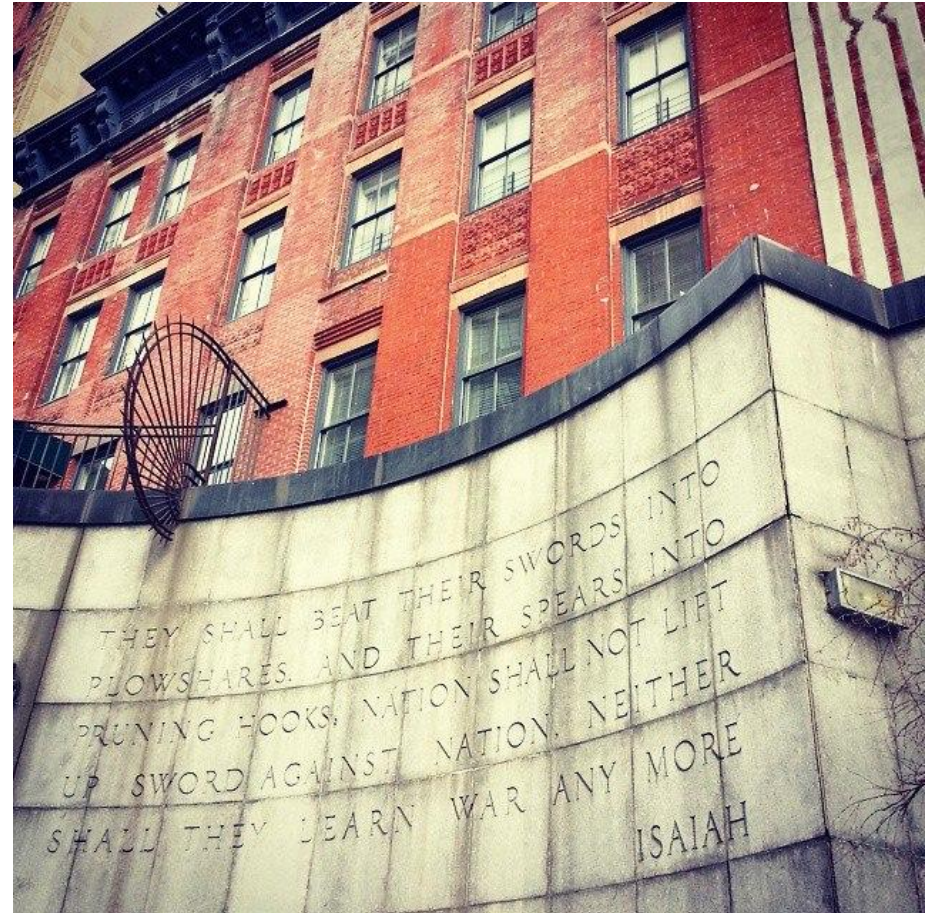 THEY SHALL BEAT THEIR SWORDS INTO
PLOWSHARES. AND THEIR SPEARS INTO
PRUNING HOOKS. NATION SHALL NOT LIFT
UP SWORD AGAINST NATION. NEITHER
SHALL THEY LEARN WAR ANY MORE
ISAIAH